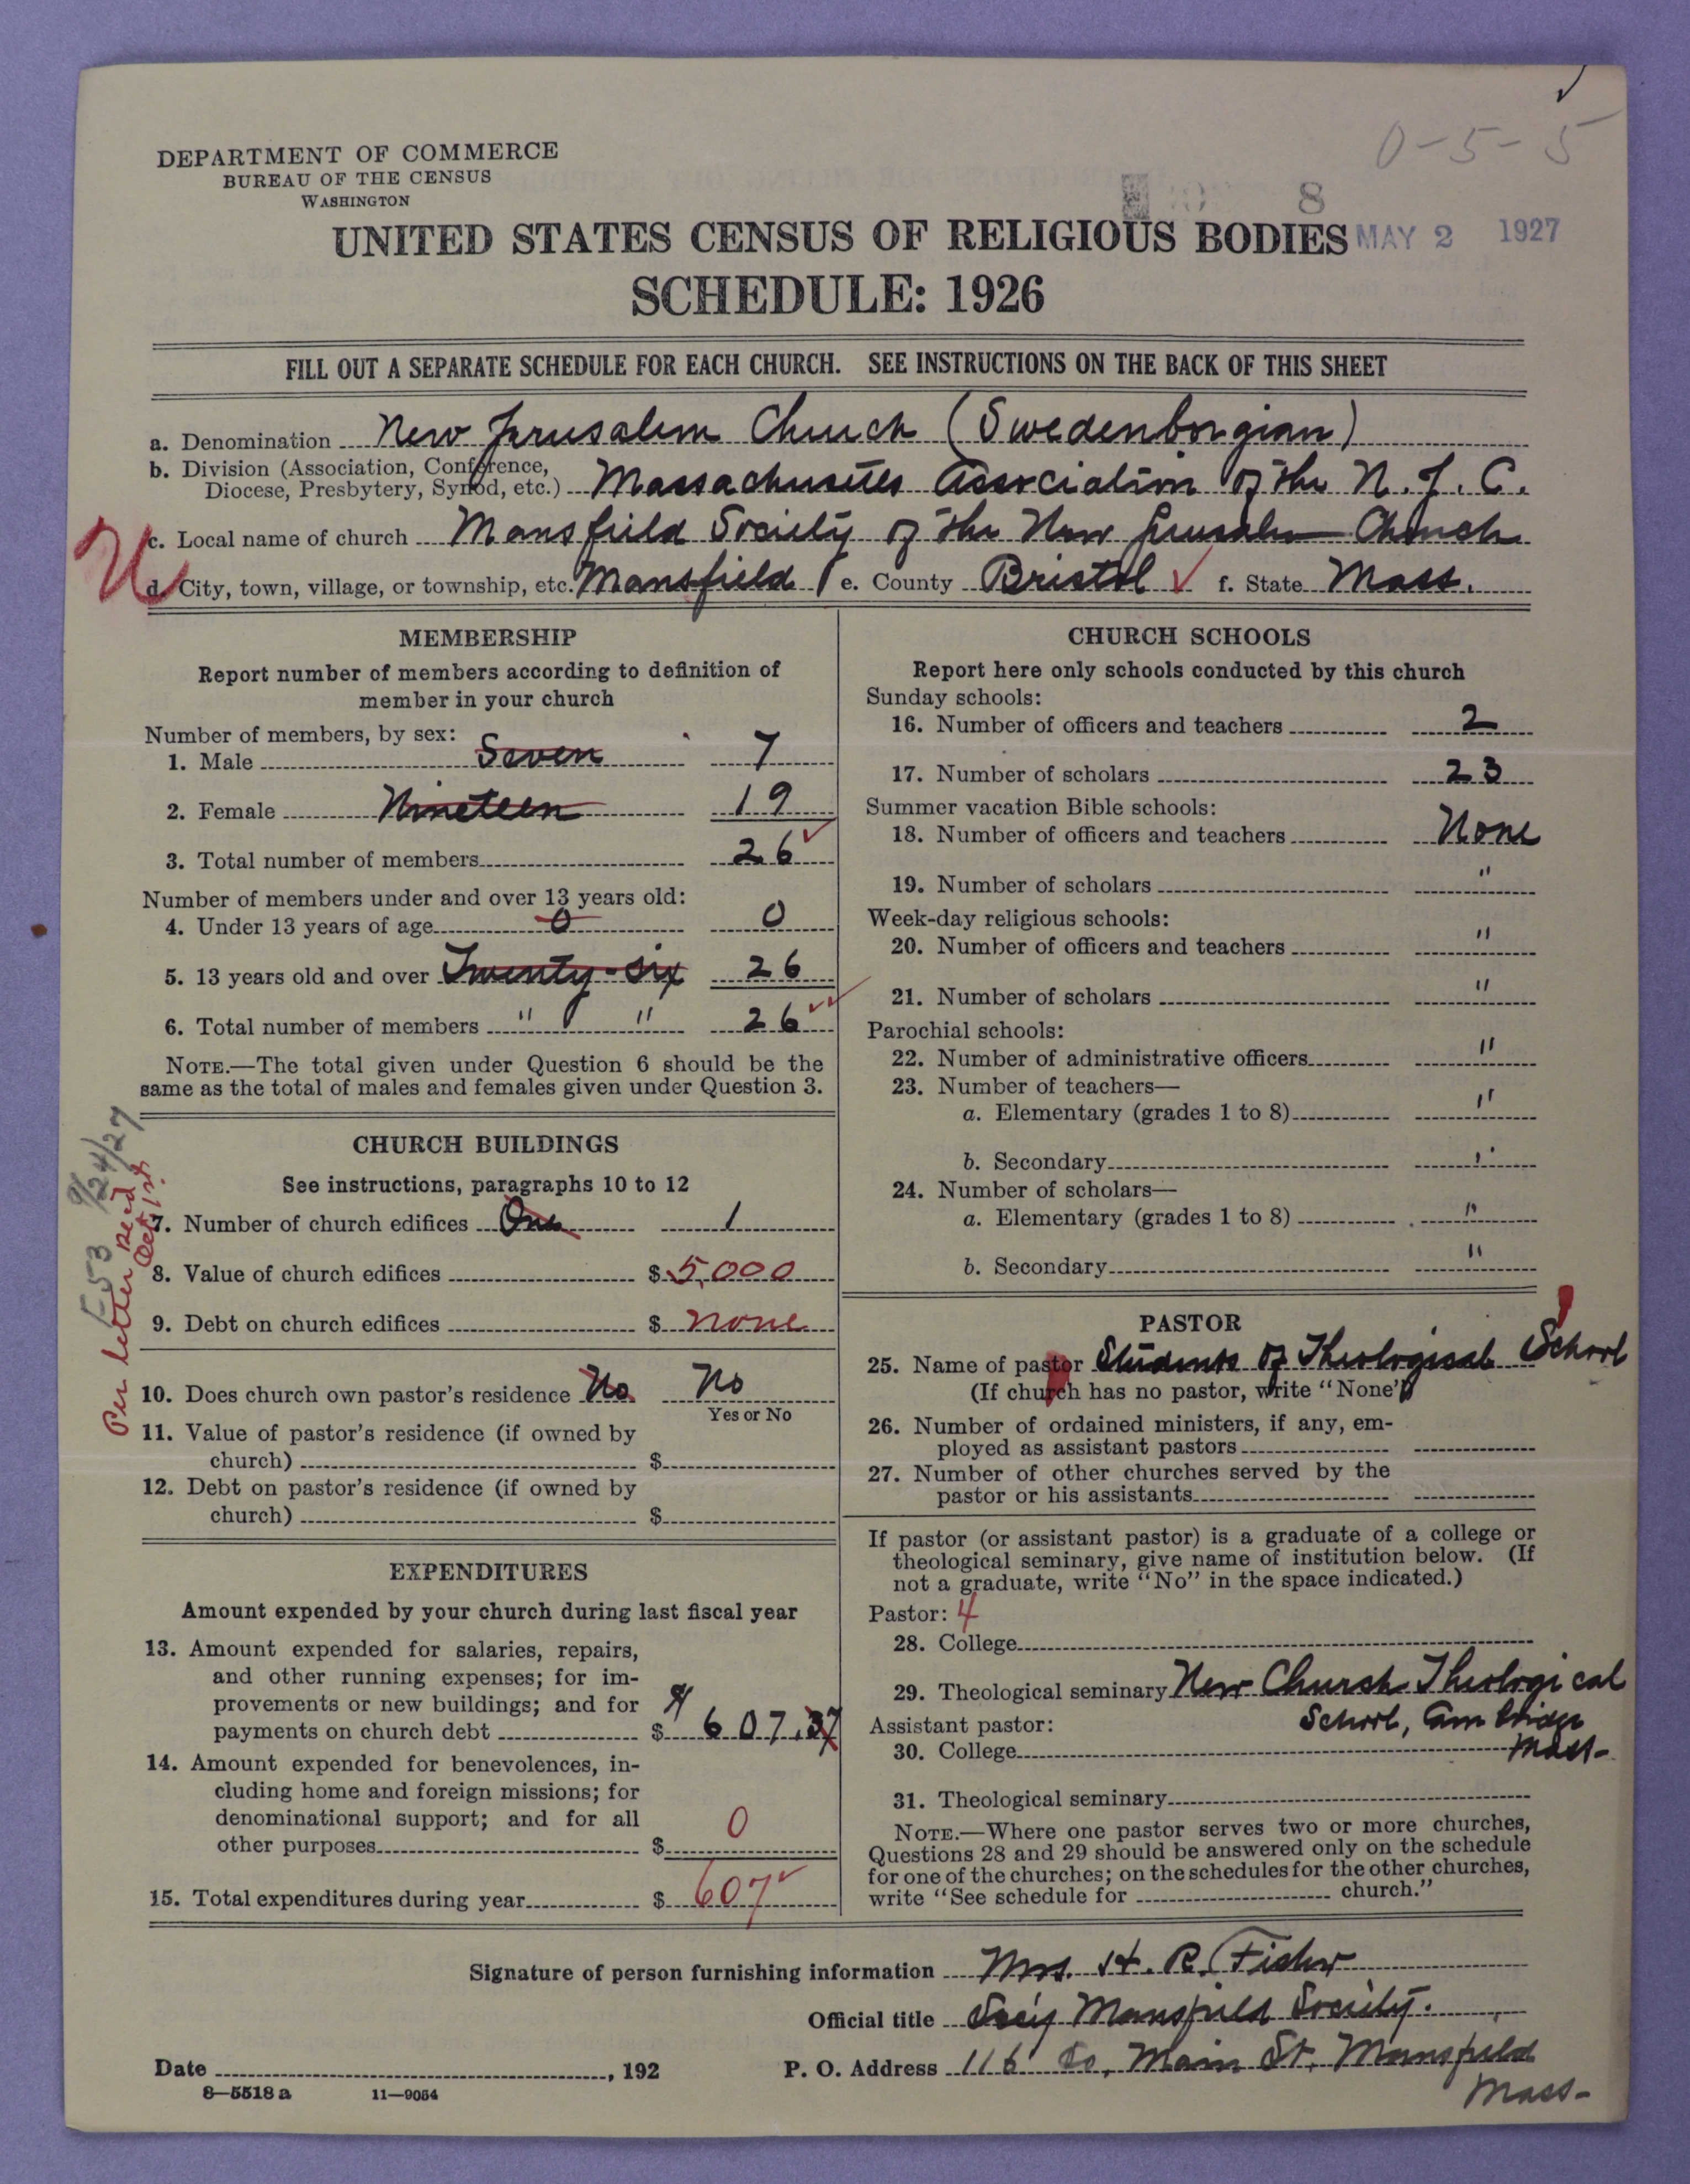 0-5-5
DEPARTMENT OF COMMERCE
BUREAU OF THE CENSUS
WASHINGTON
8
UNITED STATES CENSUS OF RELIGIOUS BODIES MAY 2 1927
SCHEDULE: 1926
FILL OUT A SEPARATE SCHEDULE FOR EACH CHURCH. SEE INSTRUCTIONS ON THE BACK OF THIS SHEET
a. Denomination New Jerusalem Church (Swedenborgian)
b. Division (Association, Conference,
Diocese, Presbytery, Synod, etc.) Massachusetts Association of the N.J.C.
c. Local name of church Mansfield Society of the New Jerusalem Church
d. City, town, village, or township, etc. Mansfield e. County Bristol f. State Mass.
MEMBERSHIP
Report number of members according to definition of
member in your church
Number of members, by sex:
1. Male Seven 7
2. Female Nineteen 19
3. Total number of members 26
Number of members under and over 13 years old:
4. Under 13 years of age 0 0
5. 13 years old and over Twenty-six 26
6. Total number of members " " 26
NOTE.—The total given under Question 6 should be the
same as the total of males and females given under Question 3.
CHURCH BUILDINGS
See instructions, paragraphs 10 to 12
7. Number of church edifices One 1
8. Value of church edifices $ 5,000
9. Debt on church edifices $ none
10. Does church own pastor's residence No No
Yes or No
11. Value of pastor's residence (if owned by
church) $
12. Debt on pastor's residence (if owned by
church) $
9/24/27
Per letter Rec'd
Oct 1st
EXPENDITURES
Amount expended by your church during last fiscal year
13. Amount expended for salaries, repairs,
and other running expenses; for im-
provements or new buildings; and for
payments on church debt $ 607.37
14. Amount expended for benevolences, in-
cluding home and foreign missions; for
denominational support; and for all
other purposes $ 0
15. Total expenditures during year $ 607
CHURCH SCHOOLS
Report here only schools conducted by this church
Sunday schools:
16. Number of officers and teachers 2
17. Number of scholars 23
Summer vacation Bible schools:
18. Number of officers and teachers None
19. Number of scholars "
Week-day religious schools:
20. Number of officers and teachers "
21. Number of scholars "
Parochial schools:
22. Number of administrative officers "
23. Number of teachers—
a. Elementary (grades 1 to 8) "
b. Secondary "
24. Number of scholars—
a. Elementary (grades 1 to 8) "
b. Secondary "
PASTOR
25. Name of pastor Students of Theological School
(If church has no pastor, write "None")
26. Number of ordained ministers, if any, em-
ployed as assistant pastors
27. Number of other churches served by the
pastor or his assistants
If pastor (or assistant pastor) is a graduate of a college or
theological seminary, give name of institution below. (If
not a graduate, write "No" in the space indicated.)
Pastor: 4
28. College
29. Theological seminary New Church Theological
School, Cambridge
Mass-
Assistant pastor:
30. College
31. Theological seminary
NOTE.—Where one pastor serves two or more churches,
Questions 28 and 29 should be answered only on the schedule
for one of the churches; on the schedules for the other churches,
write "See schedule for church."
Signature of person furnishing information Mrs. H. R. Fisher
Official title Sec'y Mansfield Society.
Date , 192 P. O. Address 116 So. Main St. Mansfield
Mass-
8—5518 a 11—9054